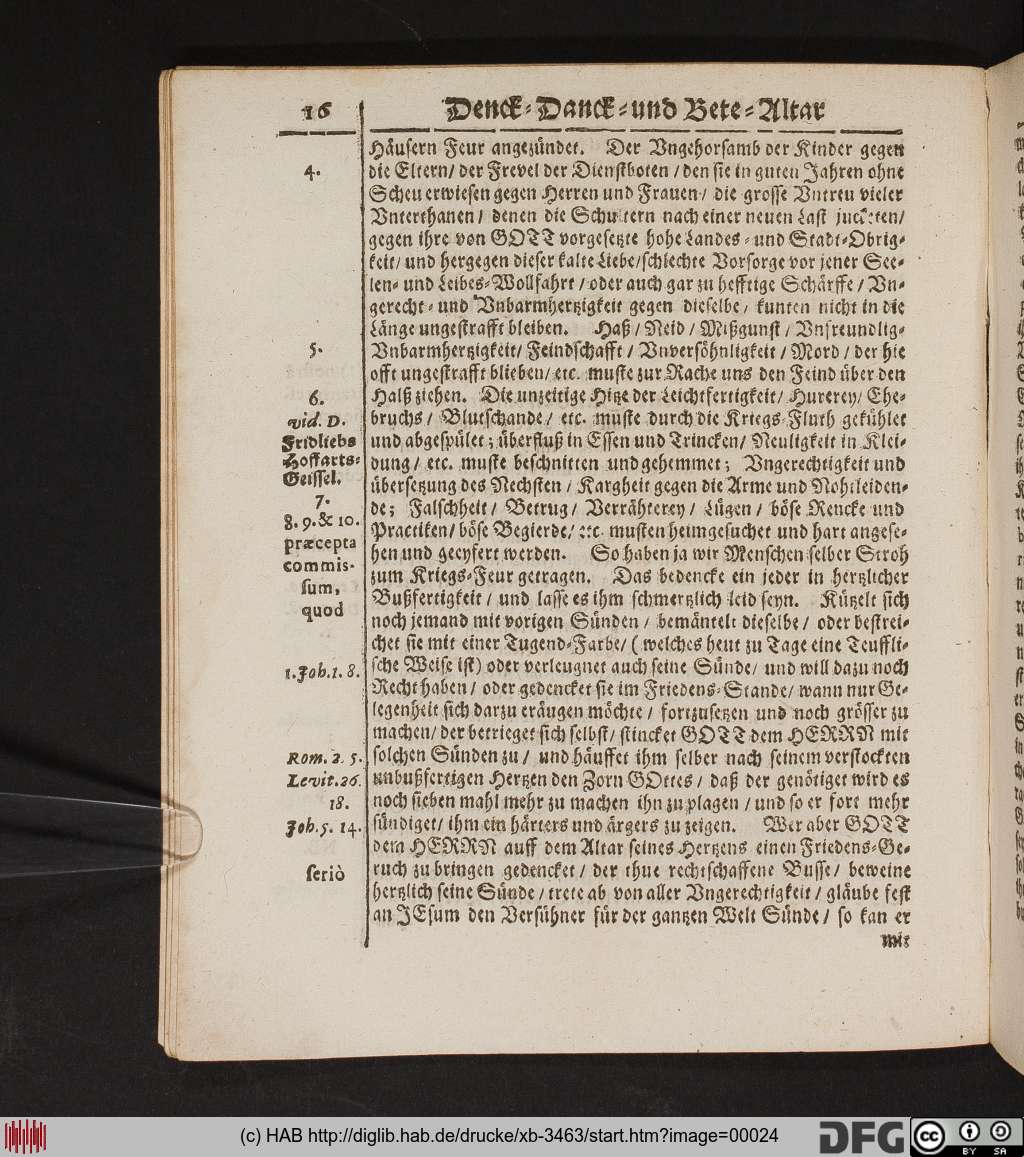 16
Denck-Danck-und Bete-Altar
Häusern Feur angezündet. Der Vngehorsamb der Kinder gegen
4.
die Eltern/ der Frevel der Dienstboten / den sie in guten Jahren ohne
Scheu erwiesen gegen Herren und Frauen / die grosse Vntreu vieler
Vnterthanen / denen die Schultern nach einer neuen Last juckten/
gegen ihre von GOTT vorgesetzte hohe Landes- und Stadt-Obrig-
keit/ und hergegen dieser kalte Liebe/schlechte Vorsorge vor jener See-
len- und Leibes-Wollfahrt / oder auch gar zu hefftige Schärffe / Vn-
gerecht- und Vnbarmhertzigkeit gegen dieselbe / kunten nicht in die
Länge ungestrafft bleiben. Haß / Neid / Mißgunst / Vnfreundlig-
5.
Vnbarmhertzigkeit/ Feindschafft / Vnversöhnligkeit / Mord / der hie
offt ungestrafft blieben/ etc. muste zur Rache uns den Feind über den
6.
Halß ziehen. Die unzeitige Hitze der Leichtfertigkeit/ Hurerey/ Ehe-
vid. D.
bruchs / Blutschande / etc. muste durch die Kriegs-Fluth gekühlet
Fridliebs
und abgespület; überfluß in Essen und Trincken/ Neuligkeit in Klei-
Hoffarts-
dung / etc. muste beschnitten und gehemmet; Vngerechtigkeit und
Geissel.
übersetzung des Nechsten / Kargheit gegen die Arme und Nohtleiden-
7.
de; Falschheit / Betrug / Verrähterey / Lügen / böse Rencke und
8. 9. & 10.
Practiken/ böse Begierde/ etc. musten heimgesuchet und hart angese-
præcepta
hen und geeyfert werden. So haben ja wir Menschen selber Stroh
commis-
zum Kriegs-Feur getragen. Das bedencke ein jeder in hertzlicher
sum,
Bußfertigkeit / und lasse es ihm schmertzlich leid seyn. Kützelt sich
quod
noch jemand mit vorigen Sünden / bemäntelt dieselbe / oder bestrei-
chet sie mit einer Tugend-Farbe/ ( welches heut zu Tage eine Teuffli-
1. Joh. 1. 8.
sche Weise ist) oder verleugnet auch seine Sünde/ und will dazu noch
Recht haben / oder gedencket sie im Friedens-Stande/ wann nur Ge-
legenheit sich darzu eräugen möchte / fortzusetzen und noch grösser zu
machen/ der betrieget sich selbst/ stincket GOTT dem HERRN mit
Rom. 2. 5.
solchen Sünden zu / und häuffet ihm selber nach seinem verstockten
Levit. 26.
unbußfertigen Hertzen den Zorn GOttes / daß der genötiget wird es
18.
noch sieben mahl mehr zu machen ihn zu plagen / und so er fort mehr
Joh. 5. 14.
sündiget/ ihm ein härters und ärgers zu zeigen. Wer aber GOTT
dem HERRN auff dem Altar seines Hertzens einen Friedens-Ge-
seriò
ruch zu bringen gedencket / der thue rechtschaffene Busse / beweine
hertzlich seine Sünde / trete ab von aller Vngerechtigkeit / gläube fest
an JEsum den Versühner für der gantzen Welt Sünde / so kan er
mit
(c) HAB http://diglib.hab.de/drucke/xb-3463/start.htm?image=00024
DFG
cc
BY SA